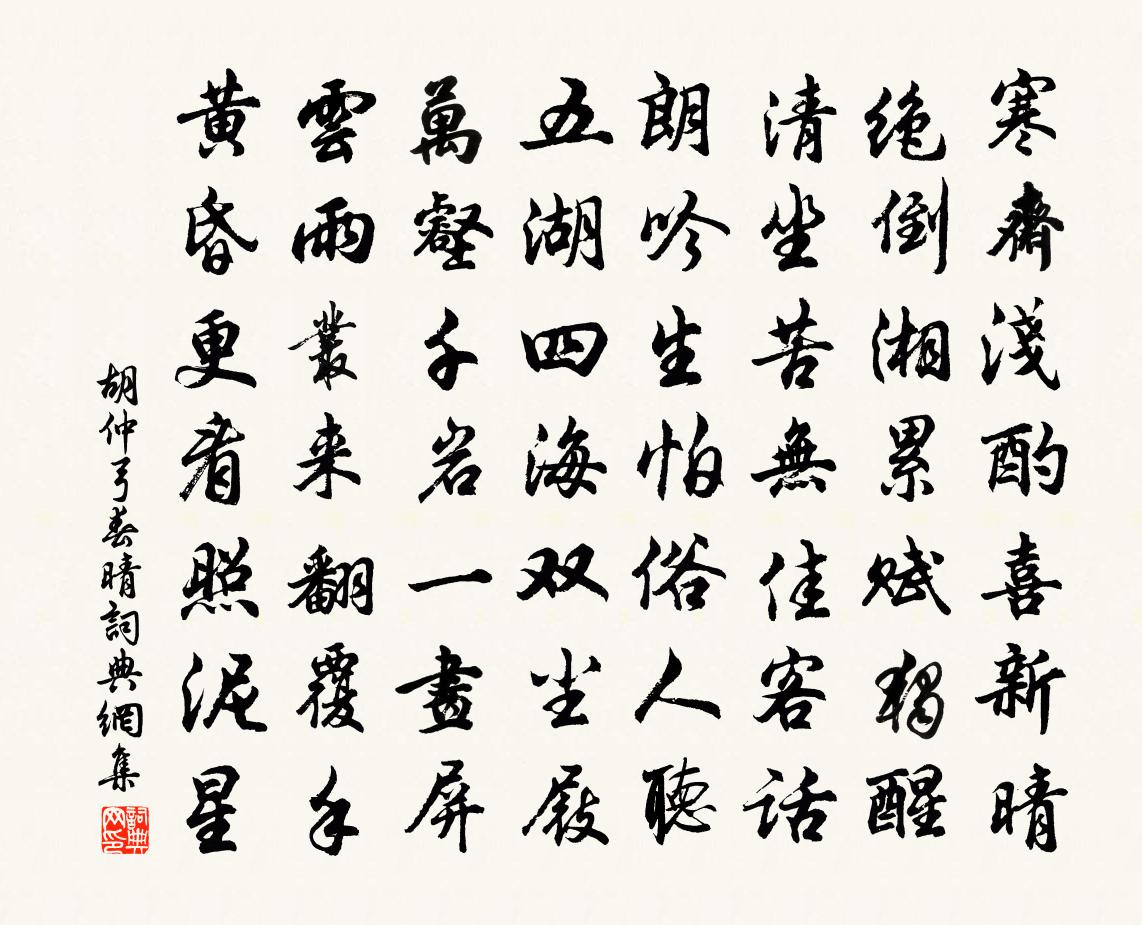 寒齋淺酌喜新晴
絶倒湘累賦獨醒
清坐苦無佳客話
朗吟生怕俗人聽
五湖四海双尘屐
萬壑千岩一畫屏
雲雨叢来翻覆手
黄昏更看照泥星
胡仲弓春晴詞典網集
詞典網印